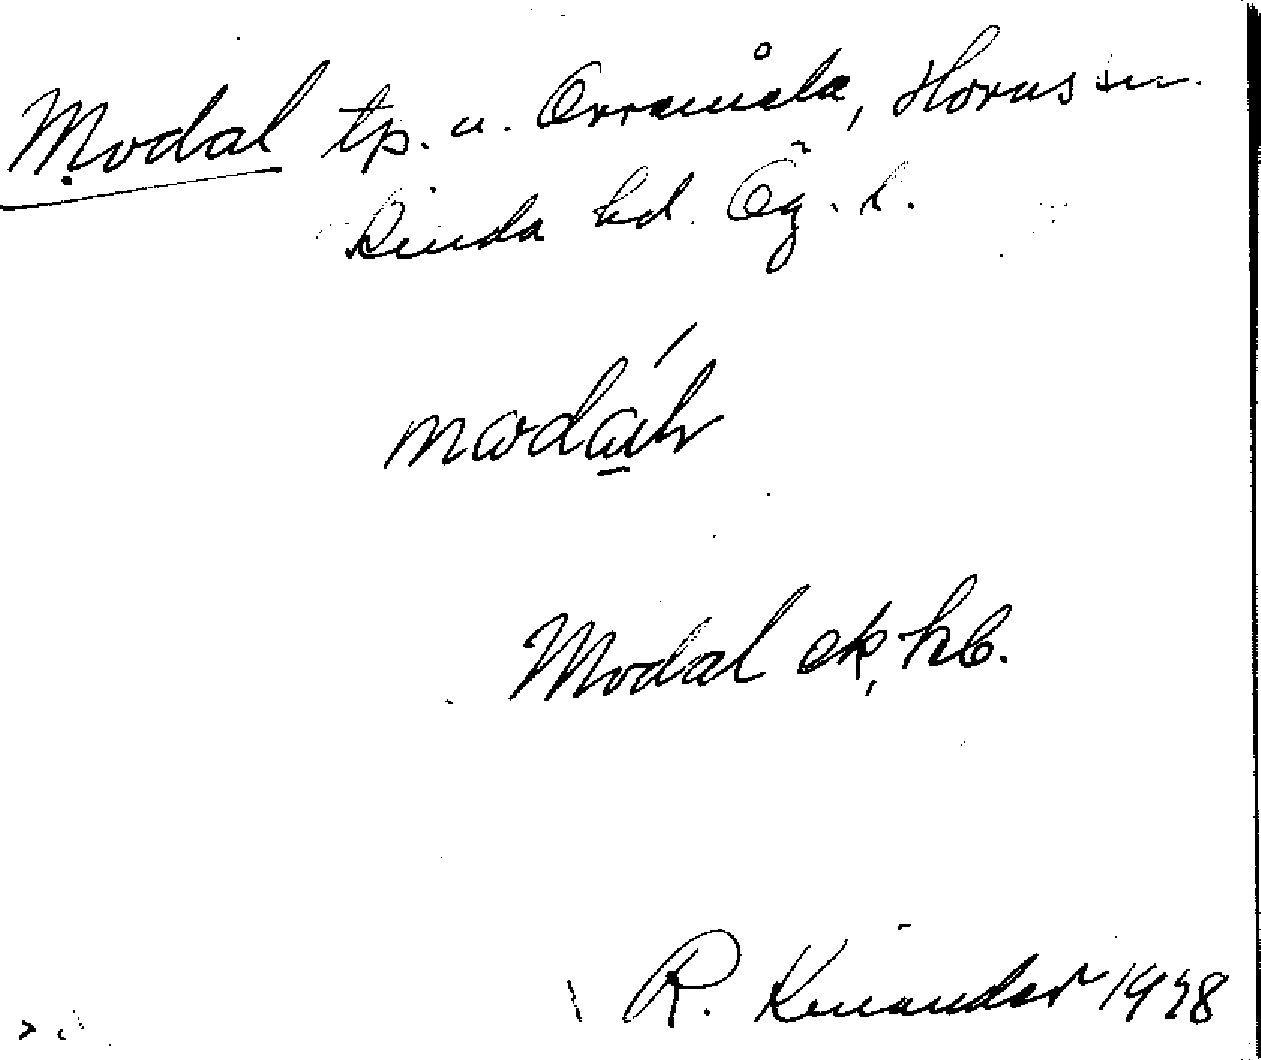 Modal tp. u. Orramåla, Horns sn.
Kinda hd. Ög. l.
Modal ek. kb.
R. Kinander 1928